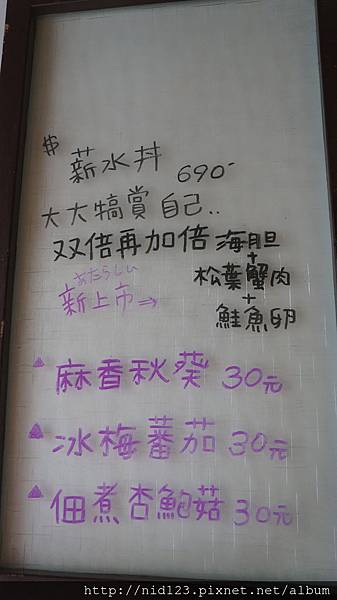 $ 薪水丼 690-
大大犒賞自己..
双倍再加倍 海胆
+
松葉蟹肉
+
鮭魚卵
あたらしい
新上市→
▲麻香秋葵 30元
▲冰梅蕃茄 30元
▲佃煮杏鮑菇 30元
http://nid123.pixnet.net/album